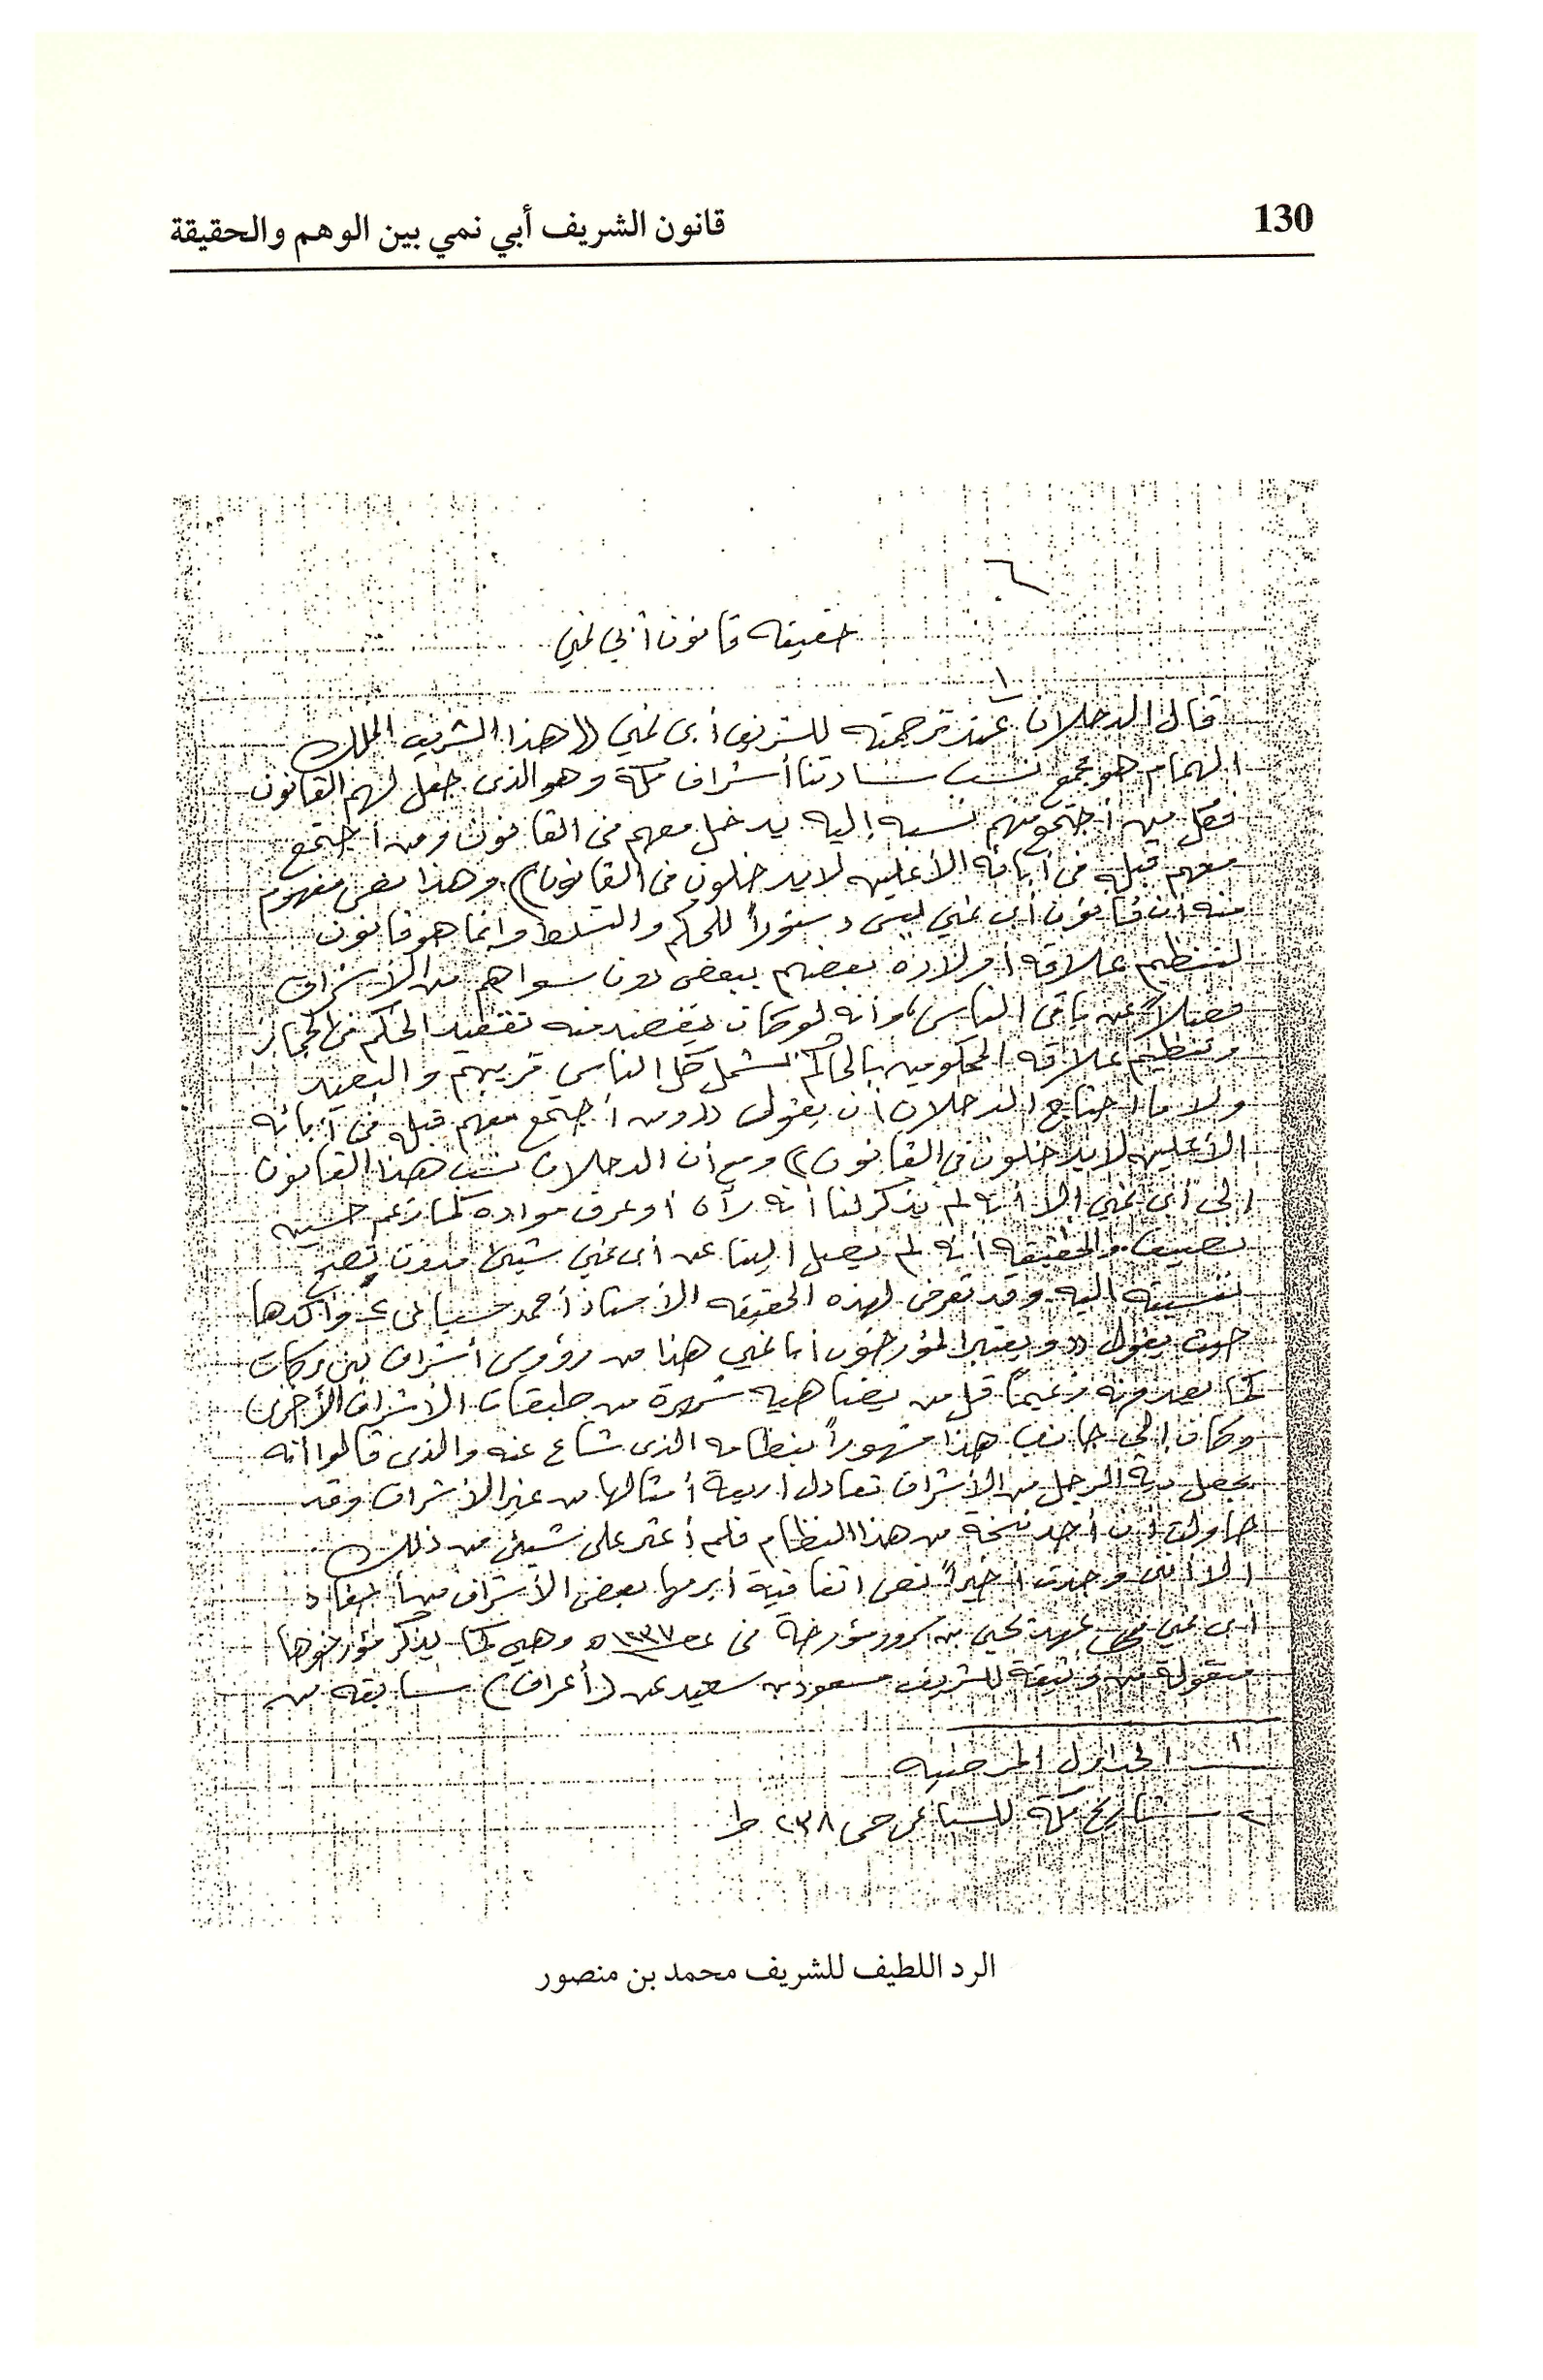 130
قانون الشريف أبي نمي بين الوهم والحقيقة
٦
حقيقة قانون أبي نمي
قال الدحلان ١ عند ترجمته للشريف أبى نمي (( هذا الشريف الملك
الهمام هو مجمع نسب سادتنا أشراف مكة وهو الذى جعل لهم القانون
فكل من أجتمع منهم نسبه إليه يدخل معهم فى القانون ومن أجتمع
معهم قبله فى أبائه الأعلين لا يدخلون فى القانون )) وهذا نص مفهوم
منه أن قانون أبى نمي ليس دستوراً للحكم والتسلط وانما هو قانون
لتنظيم علاقة أولاده بعضهم ببعض دون سواهم من الأشراف
فضلاً عن باقى الناس، وأنه لو كان يقصد منه تقعيد الحكم فى الحجاز
وتنظيم علاقة المحكومين بالحاكم لشمل كل الناس قريبهم والبعيد
ولا ما احتاج الدحلان أن يقول (( ومن أجتمع معهم قبله فى أبائه
الأعلين لا يدخلون فى القانون )) ومع أن الدحلان نسب هذا القانون
الى أبى نمي إلا أنه لم يذكر لنا أنه رآه أو عرف مواده كما زعم حسين
نصيف والحقيقة أنه لم يصل الينا عن أبى نمي شيئ مدون تصح
نسبته اليه وقد تعرض لهذه الحقيقة الأستاذ أحمد سباعى ٢ وأكدها
حيث يقول (( ويعتبر المؤرخون أبا نمي هذا من رؤوس أشراف بنى بركات
كما يعدونه زعيماً قل من يضاهيه شهرة من طبقات الأشراف الأخرى
وكان إلى جانب هذا مشهوراً بنظامه الذى شاع عنه والذى قالوا انه
يجعل دية الرجل من الأشراف تعادل اربعة أمثالها من غير الأشراف وقد
حاولت ان أجد نسخة من هذا النظام فلم أعثر على شيئ من ذلك
الا أننى وجدت أخيراً نص اتفاقية أبرمها بعض الأشراف من أحفاد
ابى نمي فى عهد يحيى بن سرور مؤرخة فى عام ١٢٣٧ه وهى كما يذكر مؤرخوها
منقولة من وثيقة للشريف مسعود بن سعيد عن (أعراف) سابقة من
١ـ الجداول المرضيه
٢ـ تاريخ مكة للسباعى ص ٢٣٨ ط
الرد اللطيف للشريف محمد بن منصور